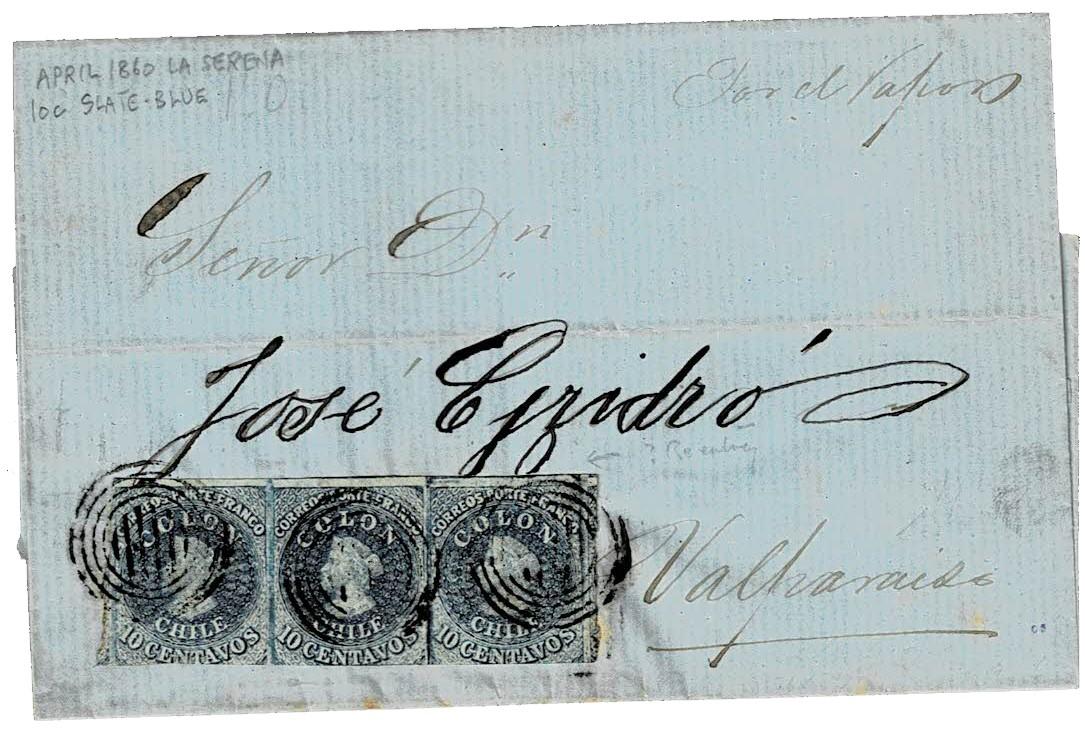 APRIL 1860 LA SERENA
10c SLATE-BLUE
Por el Vapor
Señor Dn
José Ejzidró
Valparaiso
CORREOS PORTE FRANCO
COLON
CHILE
10 CENTAVOS
CORREOS PORTE FRANCO
COLON
CHILE
10 CENTAVOS
CORREOS PORTE FRANCO
COLON
CHILE
10 CENTAVOS